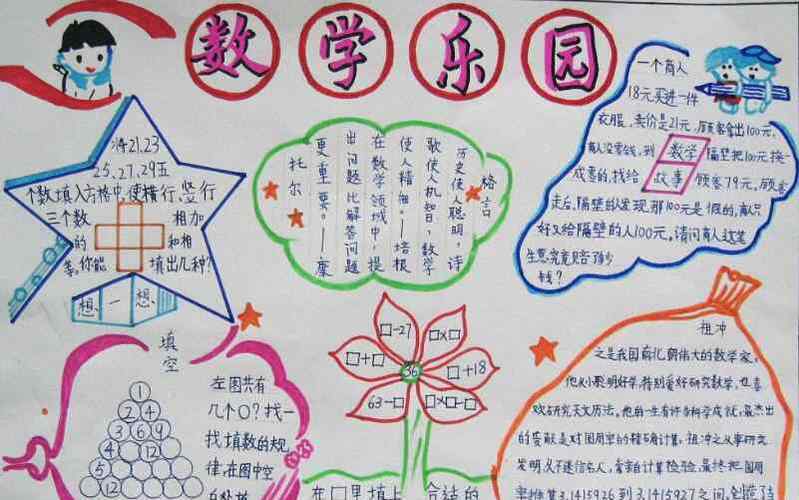 数学乐园
将21.23
25.27.29五
个数填入方格中,使横行、竖行
三个数 相加
的 和相
等。你能 填出几种?
想一想
格言
历史使人聪明,诗
歌使人机智,数学
使人精细。——培根
在数学领域中,提
出问题比解答问题
更重要。——康
托尔
一个商人
18元买进一件
衣服,卖价是21元,顾客拿出100元,
商人没零钱,到 隔壁把100元换
成零的,找给 顾客79元,顾客
数学
故事
走后,隔壁的人发现,那100元是假的,商人只
好又给隔壁的人100元。请问商人这笔
生意究竟赔了多少
钱?
填空
左图共有
几个○?找一
找填数的规
律,在图中空
1
2 4
3 6 9
4 12
5
12
□-27
□×□
□+□
36
□+18
63-□
□×□-□
在□里填上 合适的
祖冲
之是我国南北朝伟大的数学家,
他从小聪明好学,特别爱好研究数学,也喜
欢研究天文历法。他的一生有许多科学成就,最杰出
的贡献是对圆周率的精确计算,祖冲之从事研究
发明,从不迷信名人,常亲自计算检验,最终把圆周
率推算3.1415926到3.1415927之间,创造了